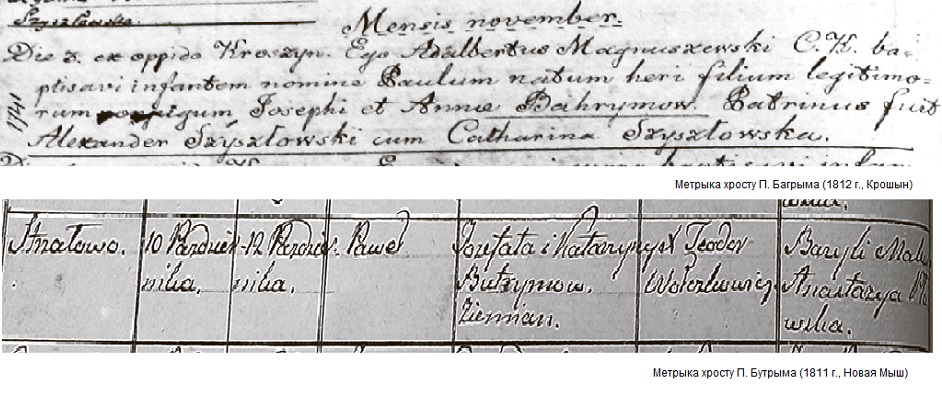 Szyszłowska.
Mensis november.
Die 3. ex oppido Kroszyn. Ego Adalbertus Magnuszewski C. K. ba-
ptisavi infantem nomine Paulum natum heri filium legitimo-
rum Josephi et Annæ Bahrymow. Patrinus fuit
Alexander Szyszłowski cum Catharina Szyszłowska.
1741
Метрыка хросту П. Багрыма (1812 г., Крошын)
10 Paździer
nika.
12 Paździer
nika.
Paweł
Jozefata i Katarzyny
Butrymow.
Ziemian.
X Teodor
Bazyli
Anastazya
wska.
Метрыка хросту П. Бутрыма (1811 г., Новая Мыш)